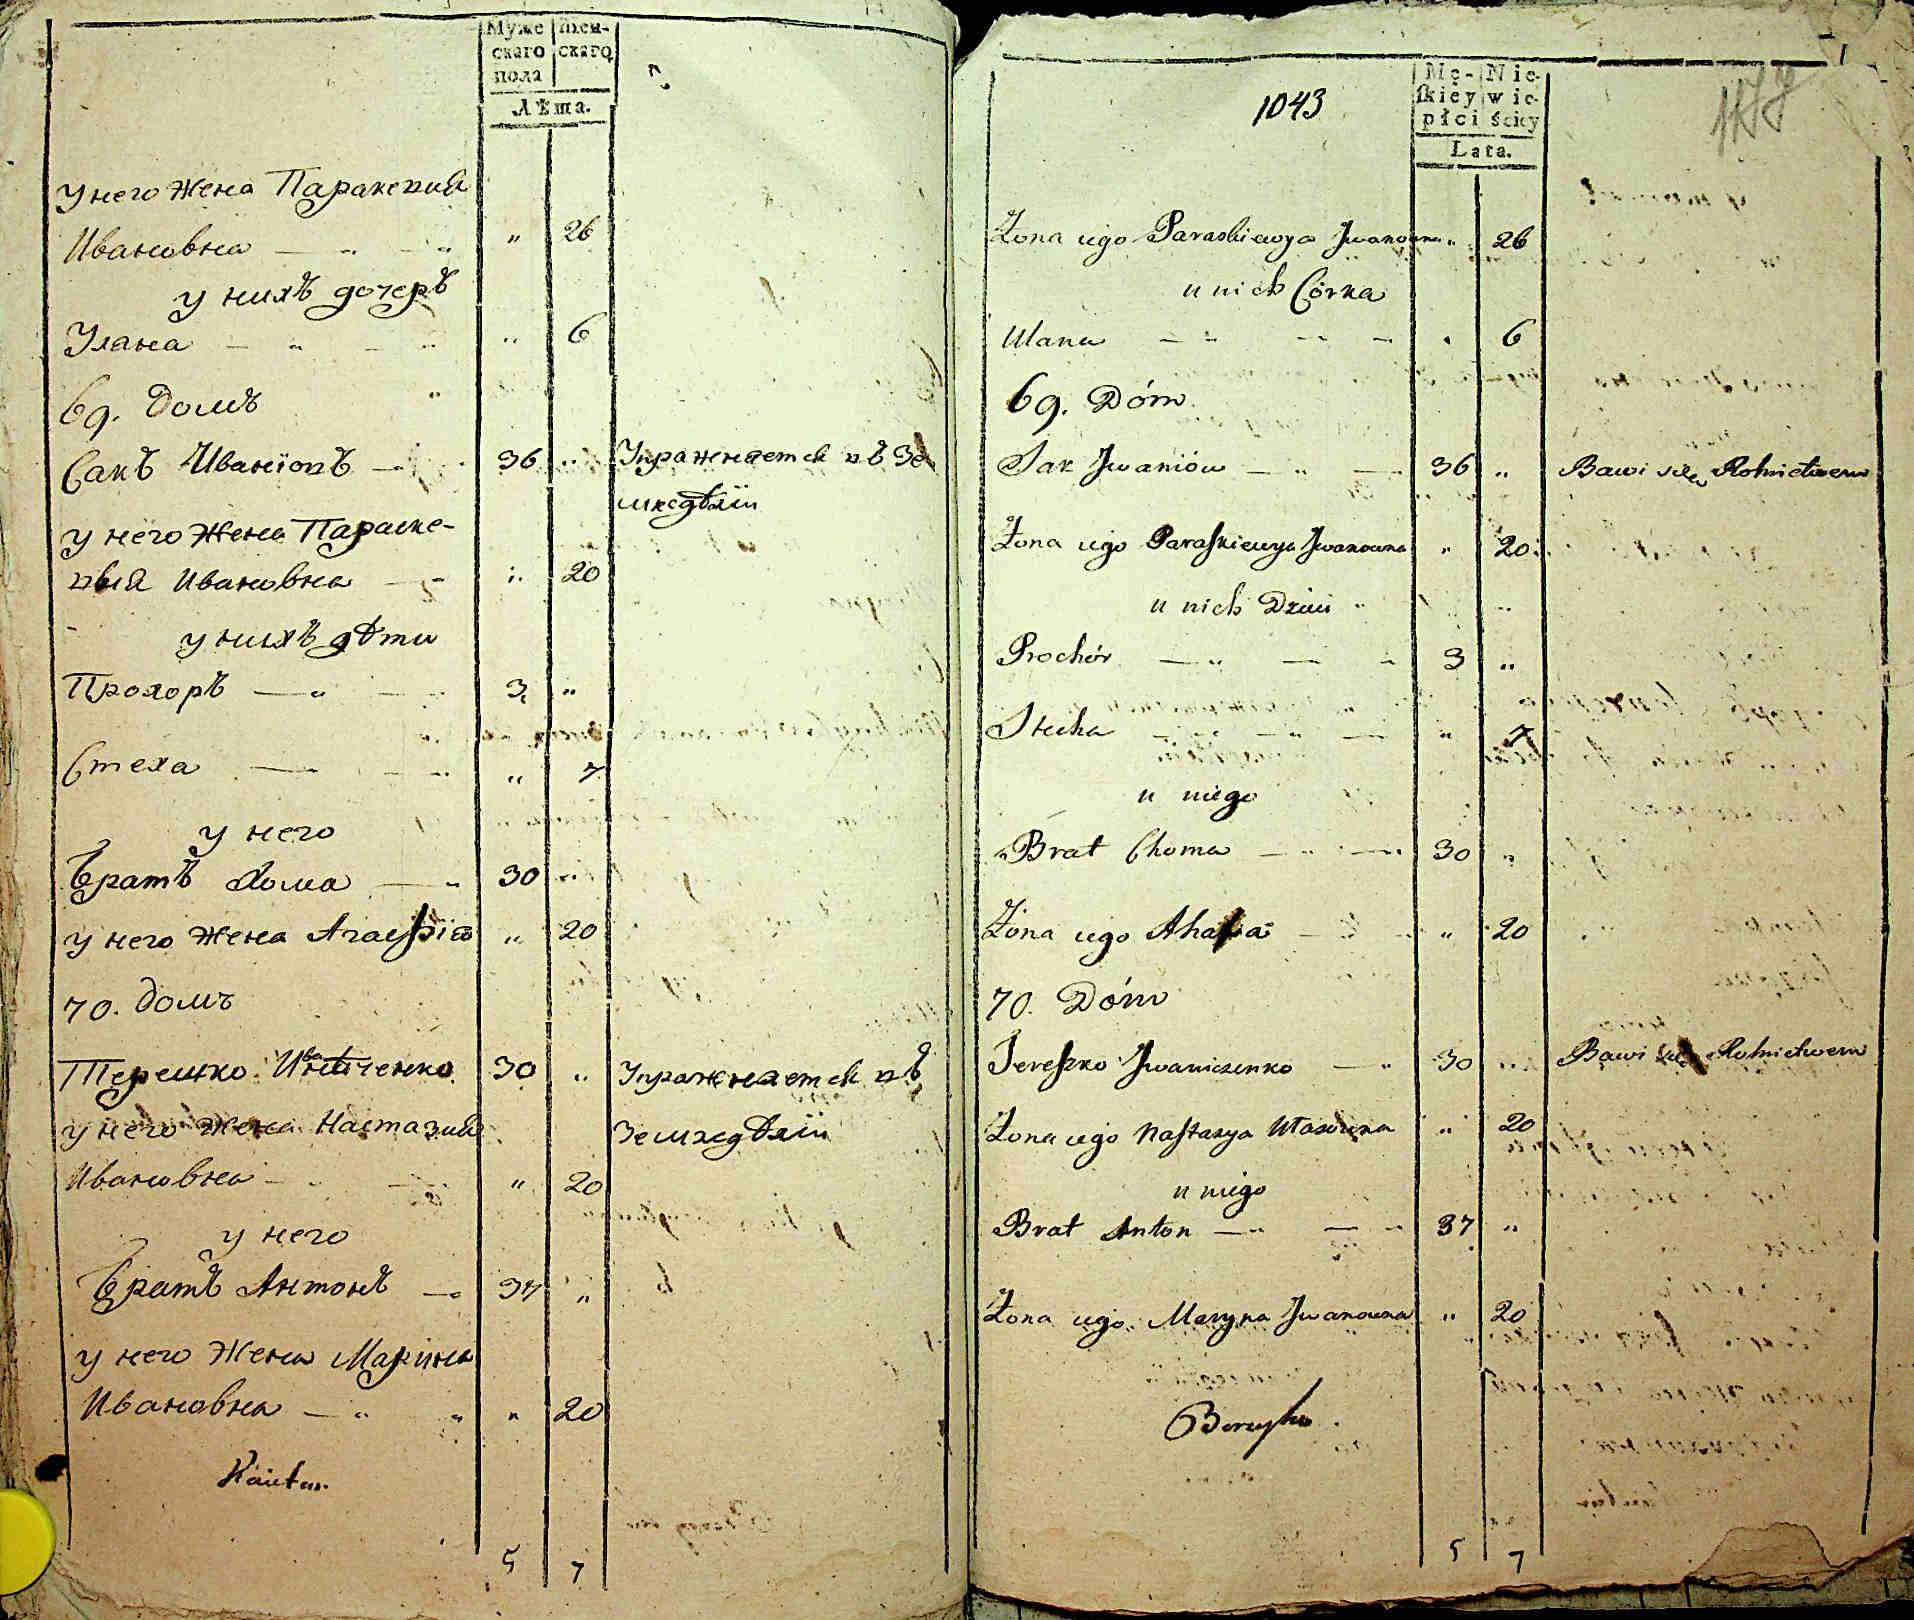 Муже
скаго
пола
жен-
скаго
Лѣта.
у него жена Параскевия
Ивановна — „ — „ „ 26
у нихъ дочеръ
Улана — „ — „ „ 6
69. Домъ
Сакъ Иванїовъ — „ 36 „ Упражняется въ Зе
мледѣлїи
у него жена Параске-
вия Ивановна — „ 20
у нихъ дѣти
Прохоръ — „ — 3 „
Стеха — — „ 7
у него
братъ Хома — „ 30 „
у него жена Агафїя „ 20
70. домъ
Терешко Иваниченко 30 „ Упражняется въ
у него жена Настазия Земледѣлїи
Ивановна — „ 20
у него
братъ Антонъ — 37 „
у него жена Марина
Ивановна — „ „ „ 20
5 7
1043
Mę-
skiey
płci
Nie-
wie-
ściey
Lata.
Żona iego Paraskiewya Jwanowna „ 26
u nich Córka
Ulana — „ — „ — „ 6
69. Dóm
Sak Jwaniów — „ — 36 „ Bawi się Rolnictwem
Żona iego Paraskiewya Jwanowna „ 20
u nich Dzieci
Prochór — „ — „ 3 „
Stecha — „ — „ 7
u niego
Brat Choma — „ — 30 „
Żona iego Ahafia — „ 20
70. Dóm
Tereszko Jwaniczenko — „ 30 „ Bawi się Rolnictwem
Żona iego Nastazya „ 20
u niego
Brat Anton — „ — „ 37 „
Żona iego Maryna Jwanowna „ 20
5 7